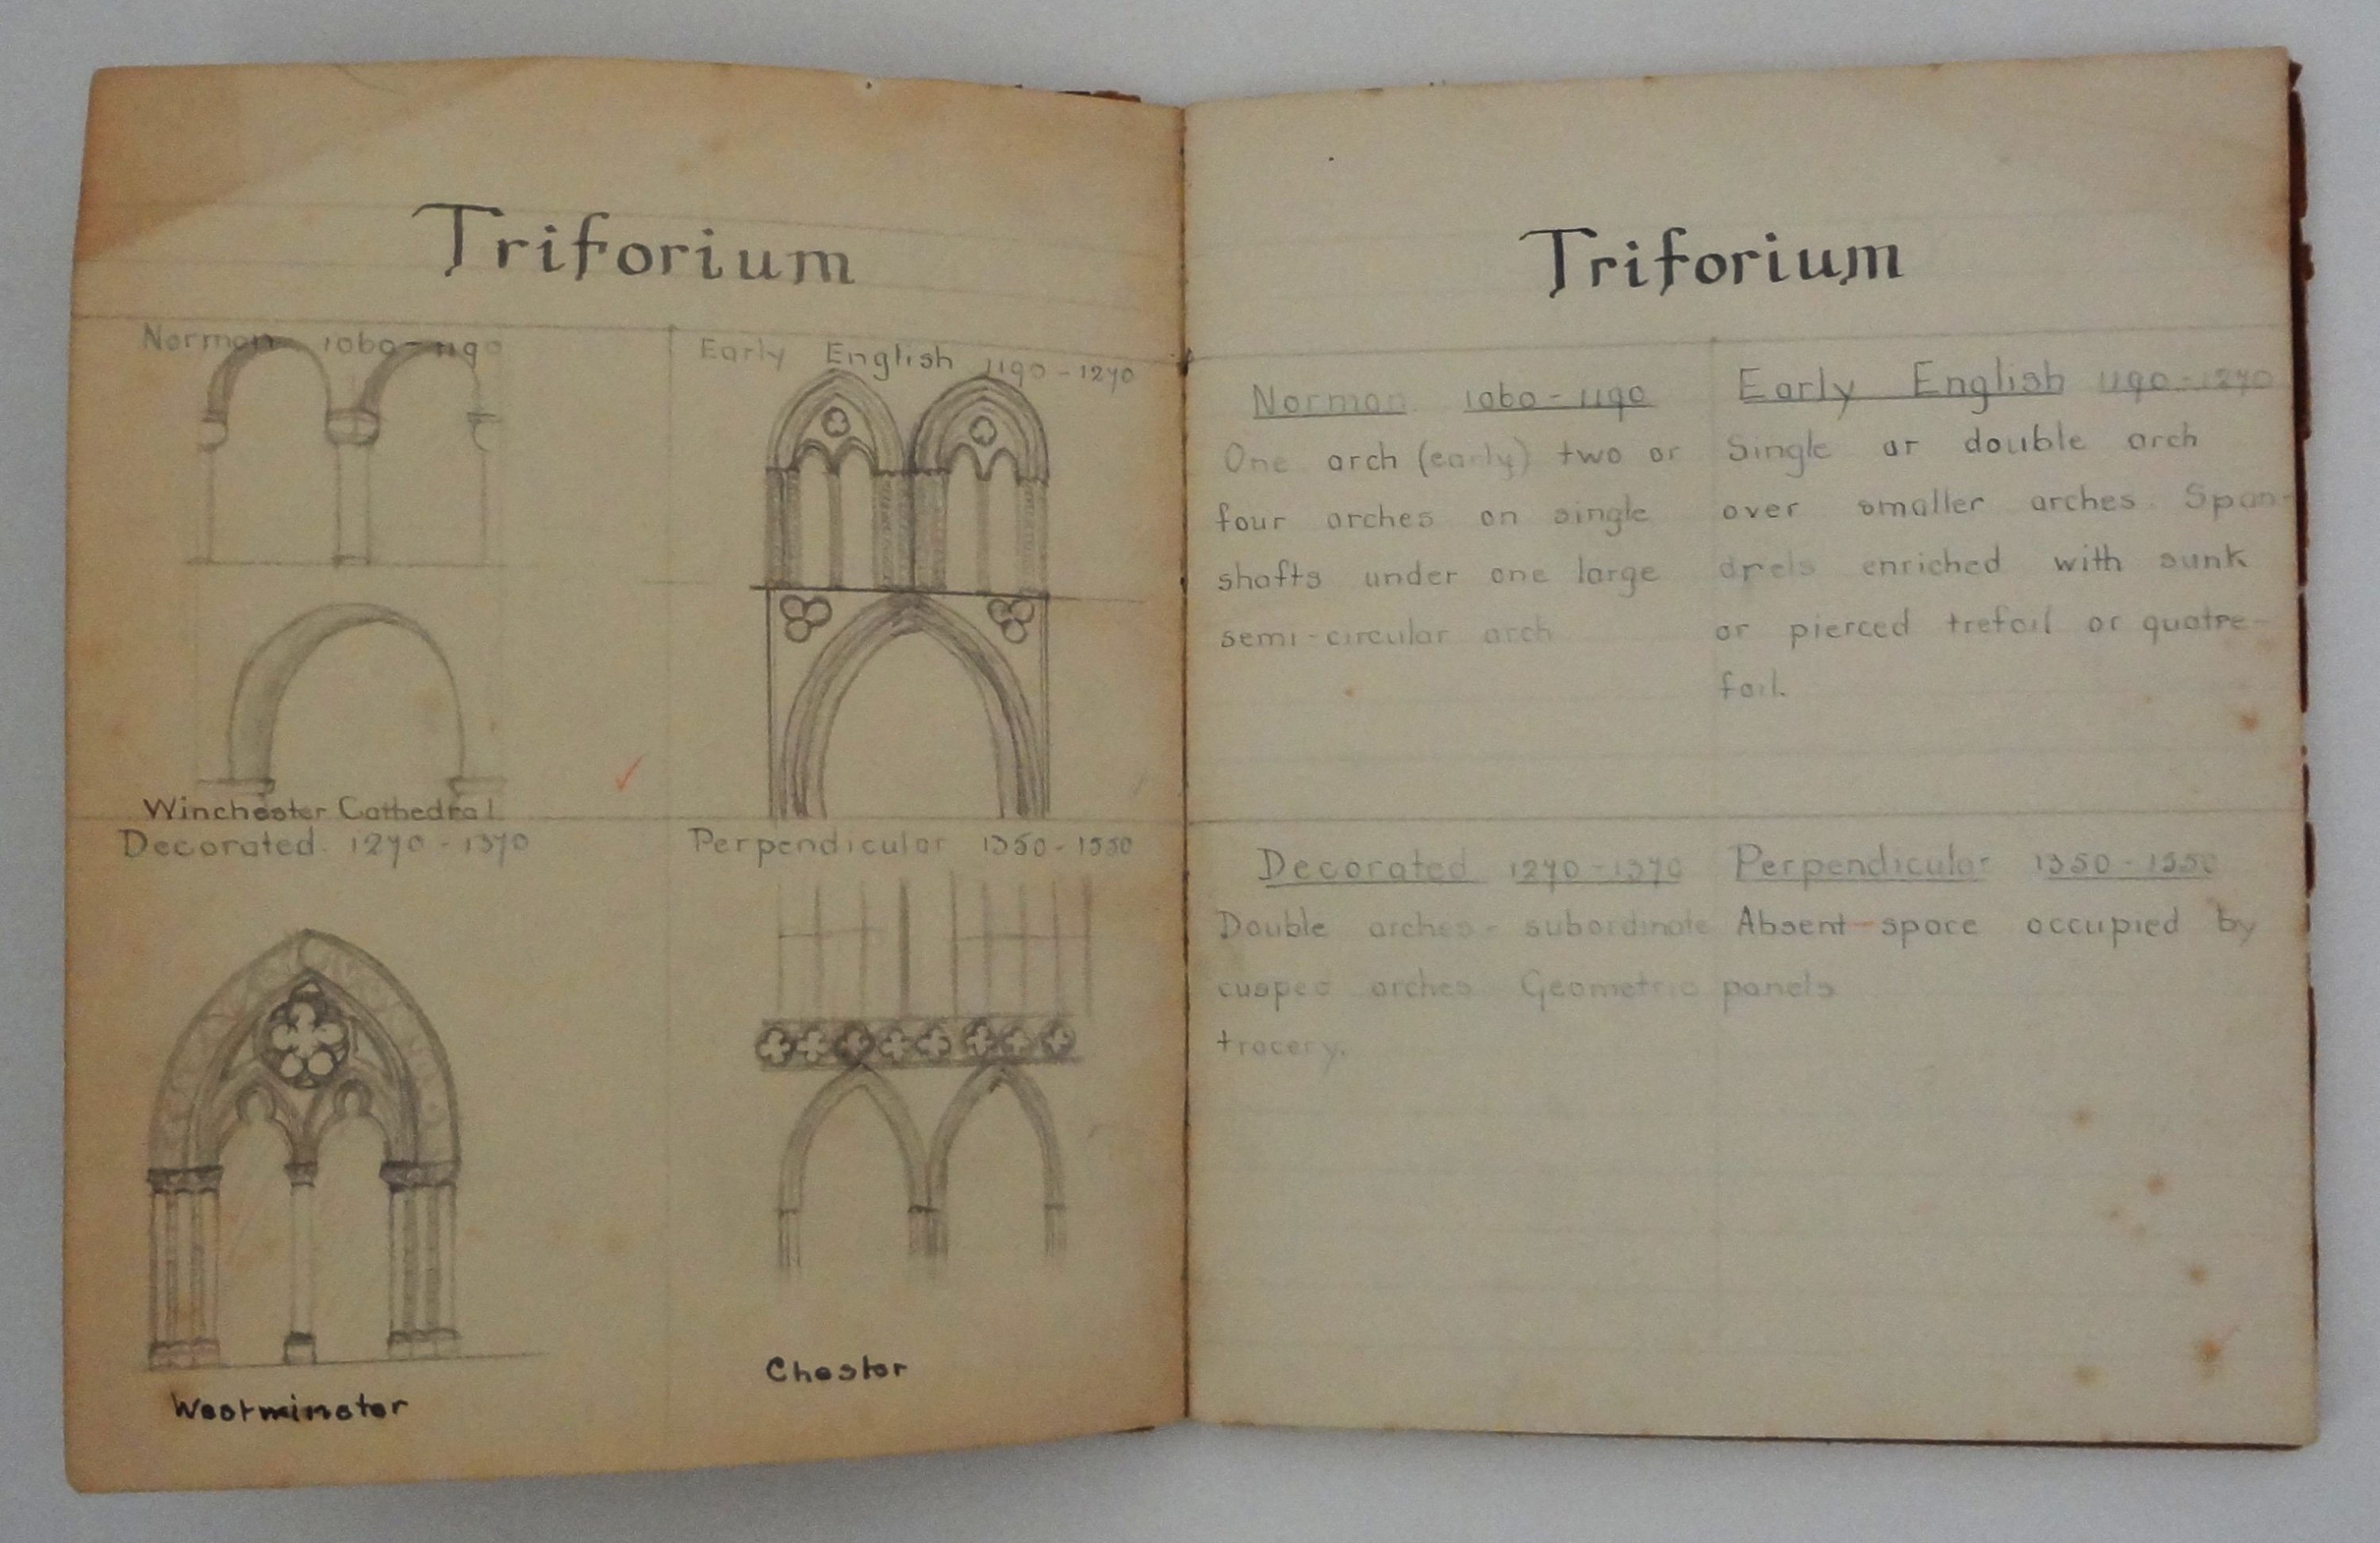 Triforium
Norman 1060-1190
Early English 1190-1270
Winchester Cathedral
Decorated 1270-1370
Perpendicular 1350-1550
Westminster
Chester
Triforium
Norman 1060-1190
One arch (early) two or
four arches on single
shafts under one large
semi-circular arch
Early English 1190-1270
Single or double arch
over smaller arches. Span-
drels enriched with sunk
or pierced trefoil or quatre-
foil.
Decorated 1270-1370
Double arches - subordinate
cusped arches. Geometric
tracery.
Perpendicular 1350-1550
Absent-space occupied by
panels